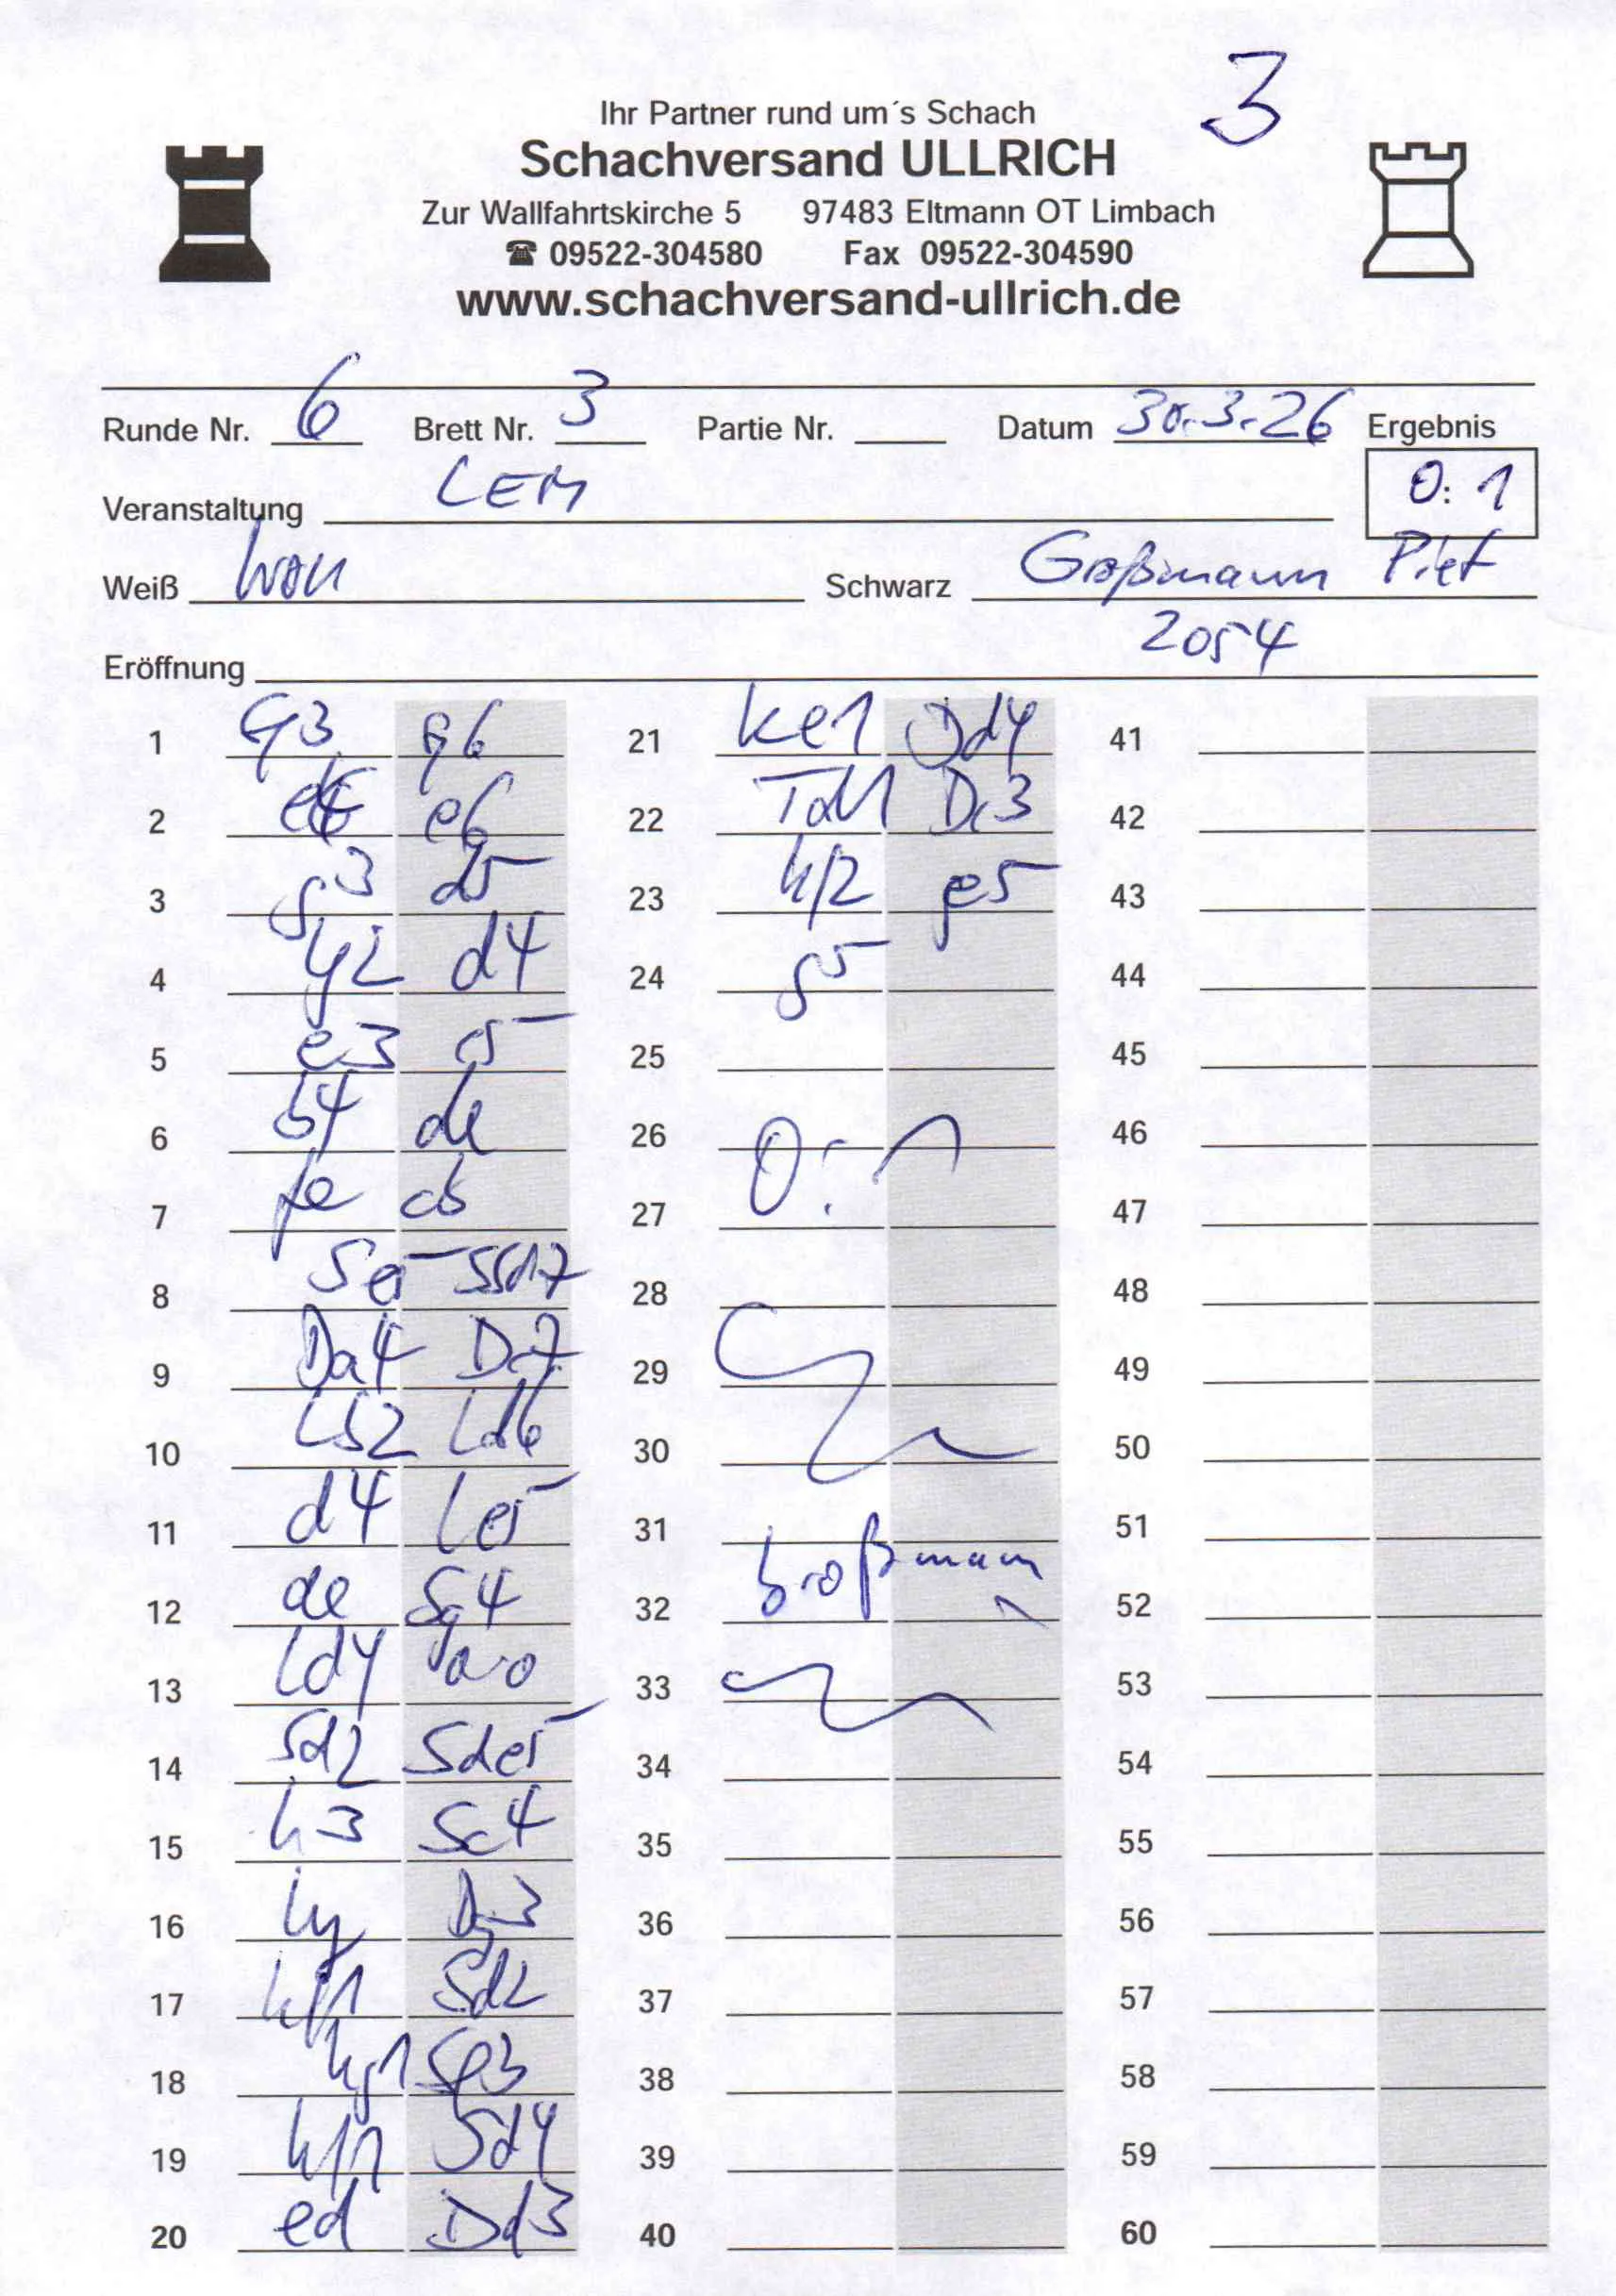 3
Ihr Partner rund um´s Schach
Schachversand ULLRICH
Zur Wallfahrtskirche 5 97483 Eltmann OT Limbach
☎ 09522-304580 Fax 09522-304590
www.schachversand-ullrich.de
Runde Nr. 6 Brett Nr. 3 Partie Nr. Datum 30.3.26 Ergebnis
0:1
Veranstaltung LEM
Weiß Schwarz Großmann Piet
2054
Eröffnung
1 21 Ke1 Dd4 41
2 e6 22 Td1 Dc3 42
3 g3 d5 23 Kf2 ge5 43
4 d4 24 g5 44
5 e3 c5 25 45
6 b4 de 26 0:1 46
7 fe cb 27 47
8 Se5 28 48
9 Da4 Dc7 29 49
10 Lb2 Ld6 30 50
11 d4 Le5 31 51
12 de Sg4 32 Großmann 52
13 Ld4 0-0 33 53
14 Sd2 Sde5 34 54
15 h3 Sc4 35 55
16 Dg3 36 56
17 Kf1 Sd2 37 57
18 Kg1 Se3 38 58
19 Kf1 Sd4 39 59
20 ed Dd3 40 60